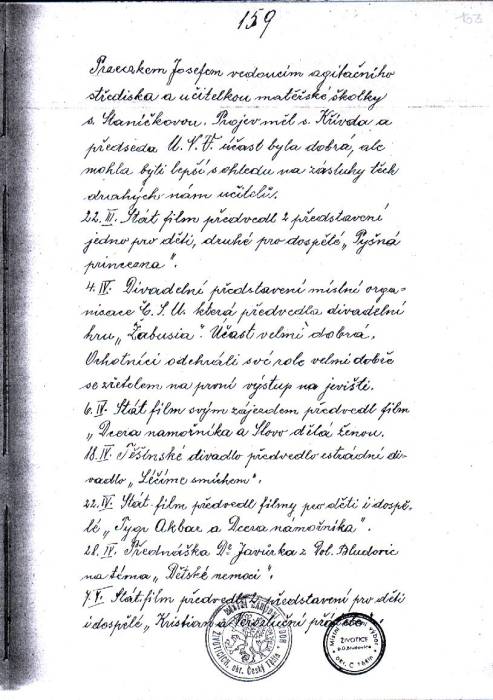 159
153
Praeczkem Josefem vedoucím agitačního
střediska a učitelkou mateřské školky
s. Staníčkovou. Projev měl s. Křivda a
předseda M.N.V. účast byla dobrá, ale
mohla býti lepší s ohledu na zásluhy těch
drahých nám učitelů.
22.III. Stát film předvedl 2 představení
jedno pro děti, druhé pro dospělé „Pyšná
princezna".
4.IV. Divadelní představení místní orga-
nisace Č.S.M. která předvedla divadelní
hru „Žabusia". Účast velmi dobrá.
Ochotníci odehráli své role velmi dobře
se zřetelem na první výstup na jeviště.
6.IV. Stát film svým zájezdem předvedl film
„Dcera namořníka a Slovo dělá ženou.
18.IV. Těšínské divadlo předvedlo estrádní di-
vadlo „Léčíme smíchem".
22.IV. Stát film předvedl filmy pro děti i dospě-
lé „Tygr Akbar a Dcera námořníka".
28.IV. Přednáška Dr Javůrka z Dol. Bludovic
na téma „Dětské nemoci".
7.V. Stát film předvedl 2 představení pro děti
i dospělé „Kristian a
ŽIVOTICE
p.D. Bludovice
ŽIVOTICÍCH, okr. Český Těšín